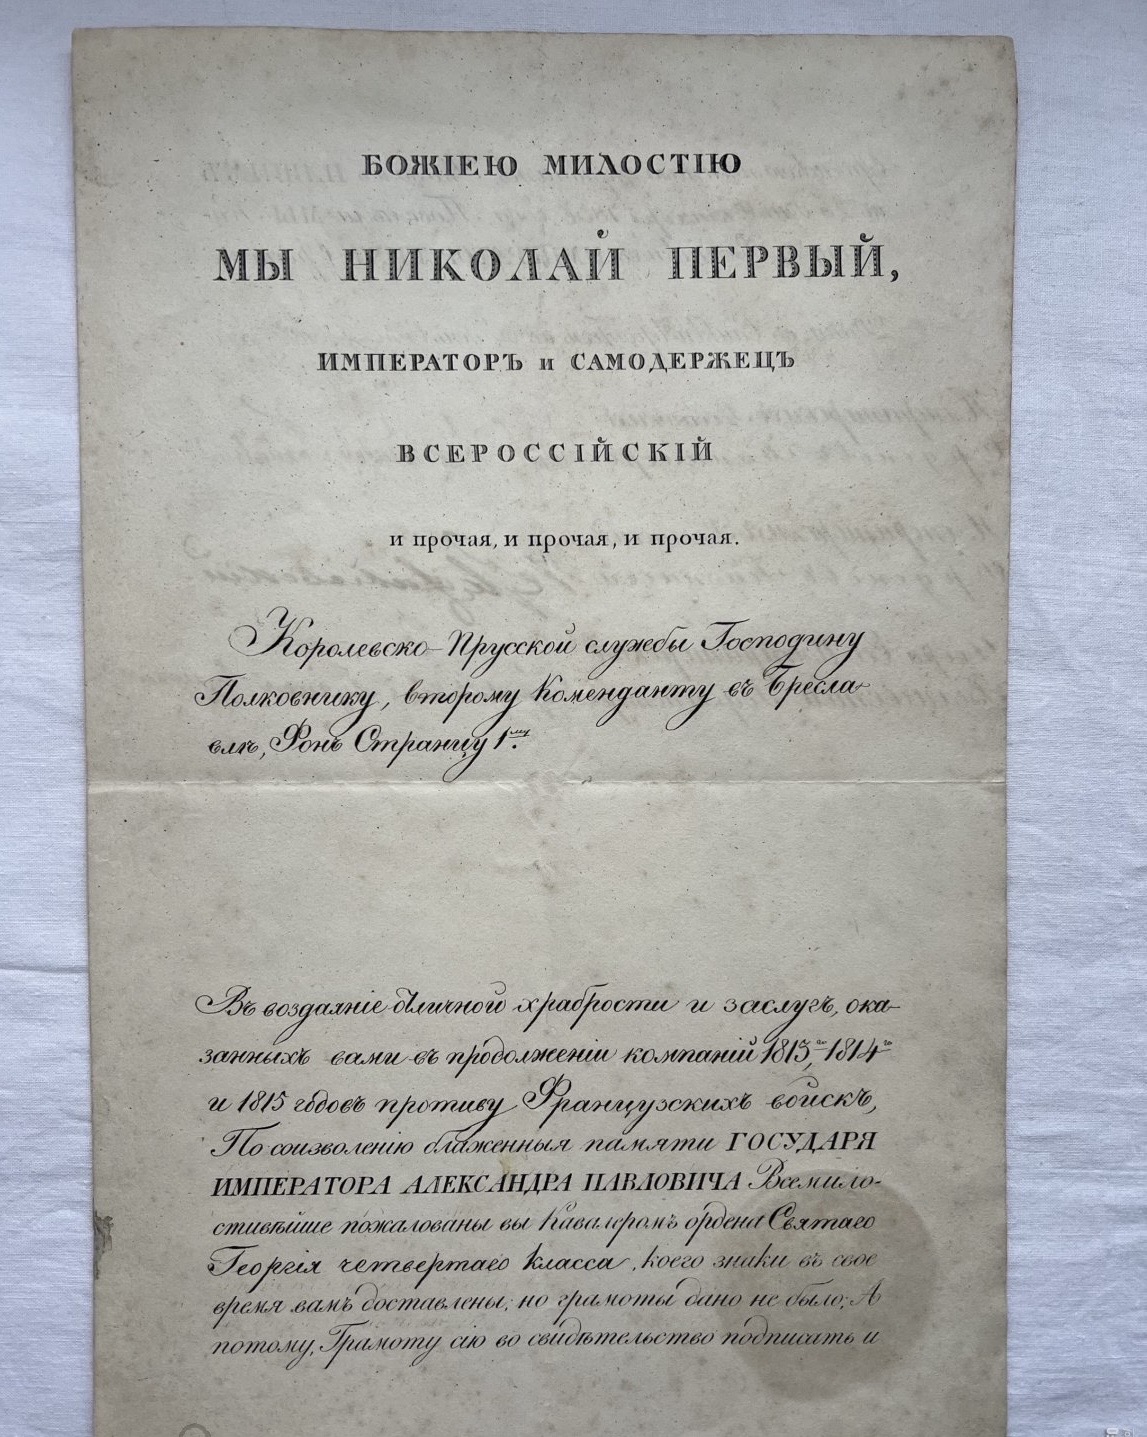 БОЖІЕЮ МИЛОСТІЮ
МЫ НИКОЛАЙ ПЕРВЫЙ,
ИМПЕРАТОРЪ и САМОДЕРЖЕЦЪ
ВСЕРОССІЙСКІЙ
и прочая, и прочая, и прочая.
Королевско-Прусской службы Господину
Полковнику, второму Коменданту въ Бресла-
влѣ, Фонъ Странцу 1му.
Въ воздаяніе отличной храбрости и заслугъ, ока-
занныхъ вами въ продолженіи компаній 1813,го 1814го
и 1815 годовъ противу Французскихъ войскъ,
По соизволенію блаженныя памяти ГОСУДАРЯ
ИМПЕРАТОРА АЛЕКСАНДРА ПАВЛОВИЧА Всемило-
стивѣйше пожалованы вы Кавалеромъ ордена Святаго
Георгія четвертаго класса, коего знаки въ свое
время вамъ доставлены; но грамоты дано не было; А
потому, Грамоту сію во свидѣтельство подписать и